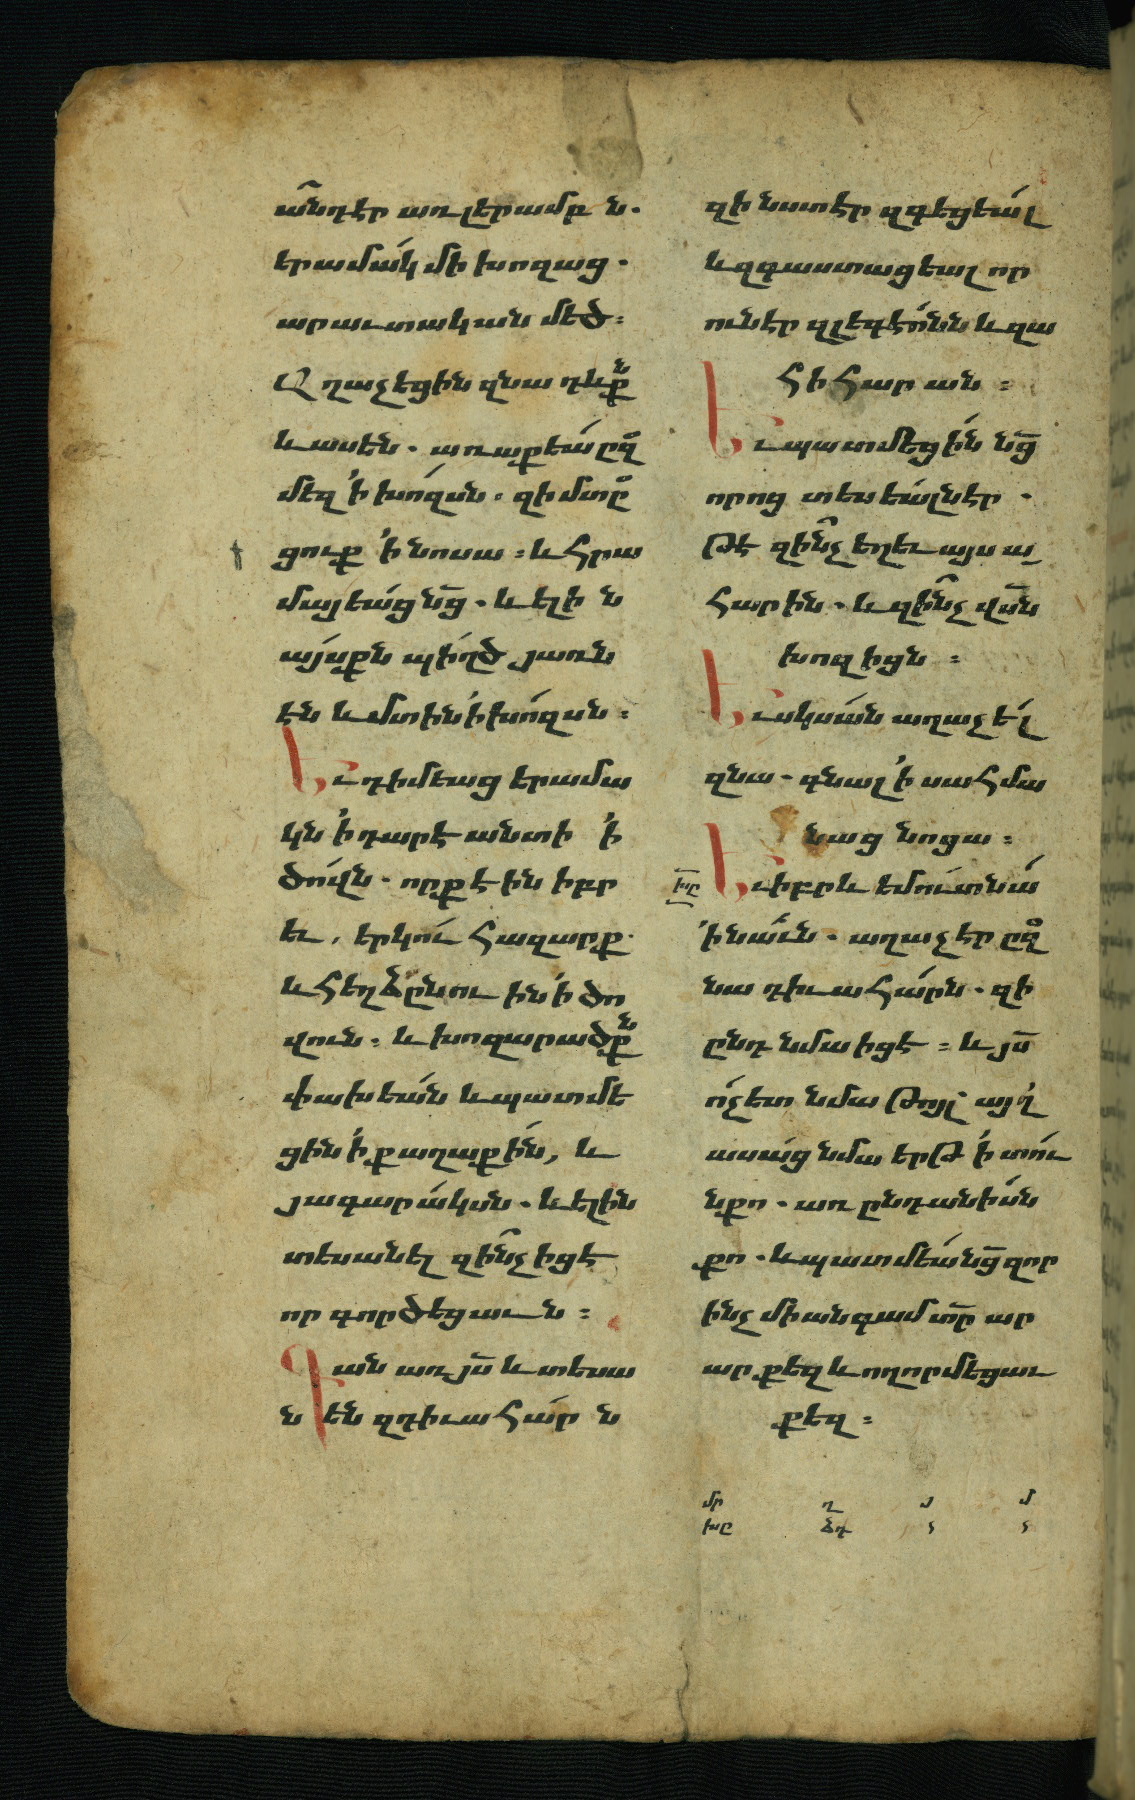 ա՟նդէր առ լերամբ ն.
երամակ մի խոզաց.
արաւտական մեծ։
Աղաչեցին զնա դևք՟ն
և ասեն. առաքեա ըզ՟
մեզ ՛ի խոզսն. զի մտ՟ց
ցուք ՛ի նոսա։ և հրա
մայեաց ն՟ց. և ելի ն
այսքն պիղծ յառն
էն և մտին ՛ի խոզսն։
Եւ դիմեաց երամա
կն ՛ի դարէ անտի ՛ի
ծովն. որք էին իբր
եւ. երկու հազարք.
և հեղձընու ին ՛ի ծո
վուն։ և խոզարածք՟ն
փախեան և պատմե
ցին ՛ի քաղաքին, և
յագարակսն. և ելին
տեսանել զի՟նչ իցէ
որ գործեցաւ ն։
Գան առ յ՟ս և տեսա
ն են զդիւահար ն
զի նստէր զգեցեալ
և զգաստացեալ որ
ունէր զլեգէոնն և զա
հի հար ան։
Եւ պատմեցին ն՟ց
որոց տեսեալն էր.
թէ զի՟նչ եղեւ այս ա
հարին. և զի՟նչ վ՟սն
խոզիցն։
Եւ սկսան աղաչ ել
զնա. գնալ ՛ի սահմա
նաց նոցա։
խը Եւ իբրև եմուտ նա
՛ի նա՟ւն. աղաչէր ըզ՟
նա դիւահարն. զի
ընդ նմա իցէ։ և յ՟ս
ոչ ետ նմա թոյլ այ՟ղ
ասաց նմա երթ ՛ի տու
ն քո. առ ընդանիսն
քո. և պատմեա ն՟ց զոր
ինչ միանգամ տ՟ր ար
ար քեզ և ողորմեցաւ
քեզ։
մր ղ յ մ
խը ձդ